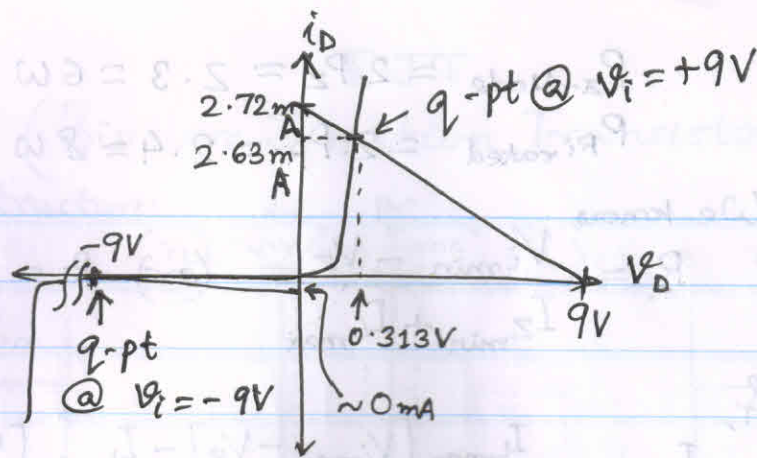 i_D
2.72m
A
2.63m
A
q-pt @ v_i = +9V
-9V
v_D
9V
0.313V
q-pt
@ v_i = -9V
~0mA